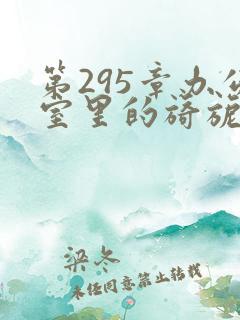 第295章办公
室里的旖旎
梁冬
未经同意禁止转载